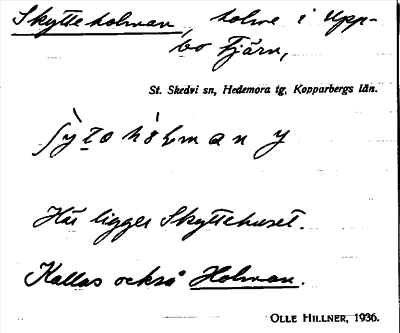 Skytteholman, holme i Upp-
bo Tjärn,
St. Skedvi sn, Hedemora tg, Kopparbergs län.
Här ligger Skyttehuset.
Kallas också Holman.
OLLE HILLNER, 1936.